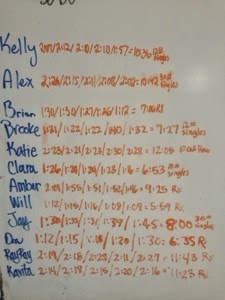 Kelly 2:17/2:12/2:10/2:10/1:57=10:36 singles
Alex 2:26/2:15/2:11/2:08/2:02=10:42 singles
Brian 1:30/1:30/1:27/1:26/1:12=
Brooke 1:21/1:22/1:22/1:40/1:32=7:27 singles
Katie 2:23/2:21/2:23/2:30/2:28=12:05
Clara 1:26/1:24/1:20/1:23/1:16=6:53 singles
Amber 1:55/1:51/1:52/1:46=9:25 Rx
Will 1:12/1:15/1:16/1:09/1:09=5:59 Rx
Jay 1:30/1:35/1:31/1:39/1:45=8:00 singles
Dan 1:12/1:15/1:18/1:20/1:30=6:35 Rx
RayRay 2:19/2:18/2:28/2:11/2:27=11:43 Rx
Kanita 2:14/2:18/2:15/2:20/2:16=11:23 Rx